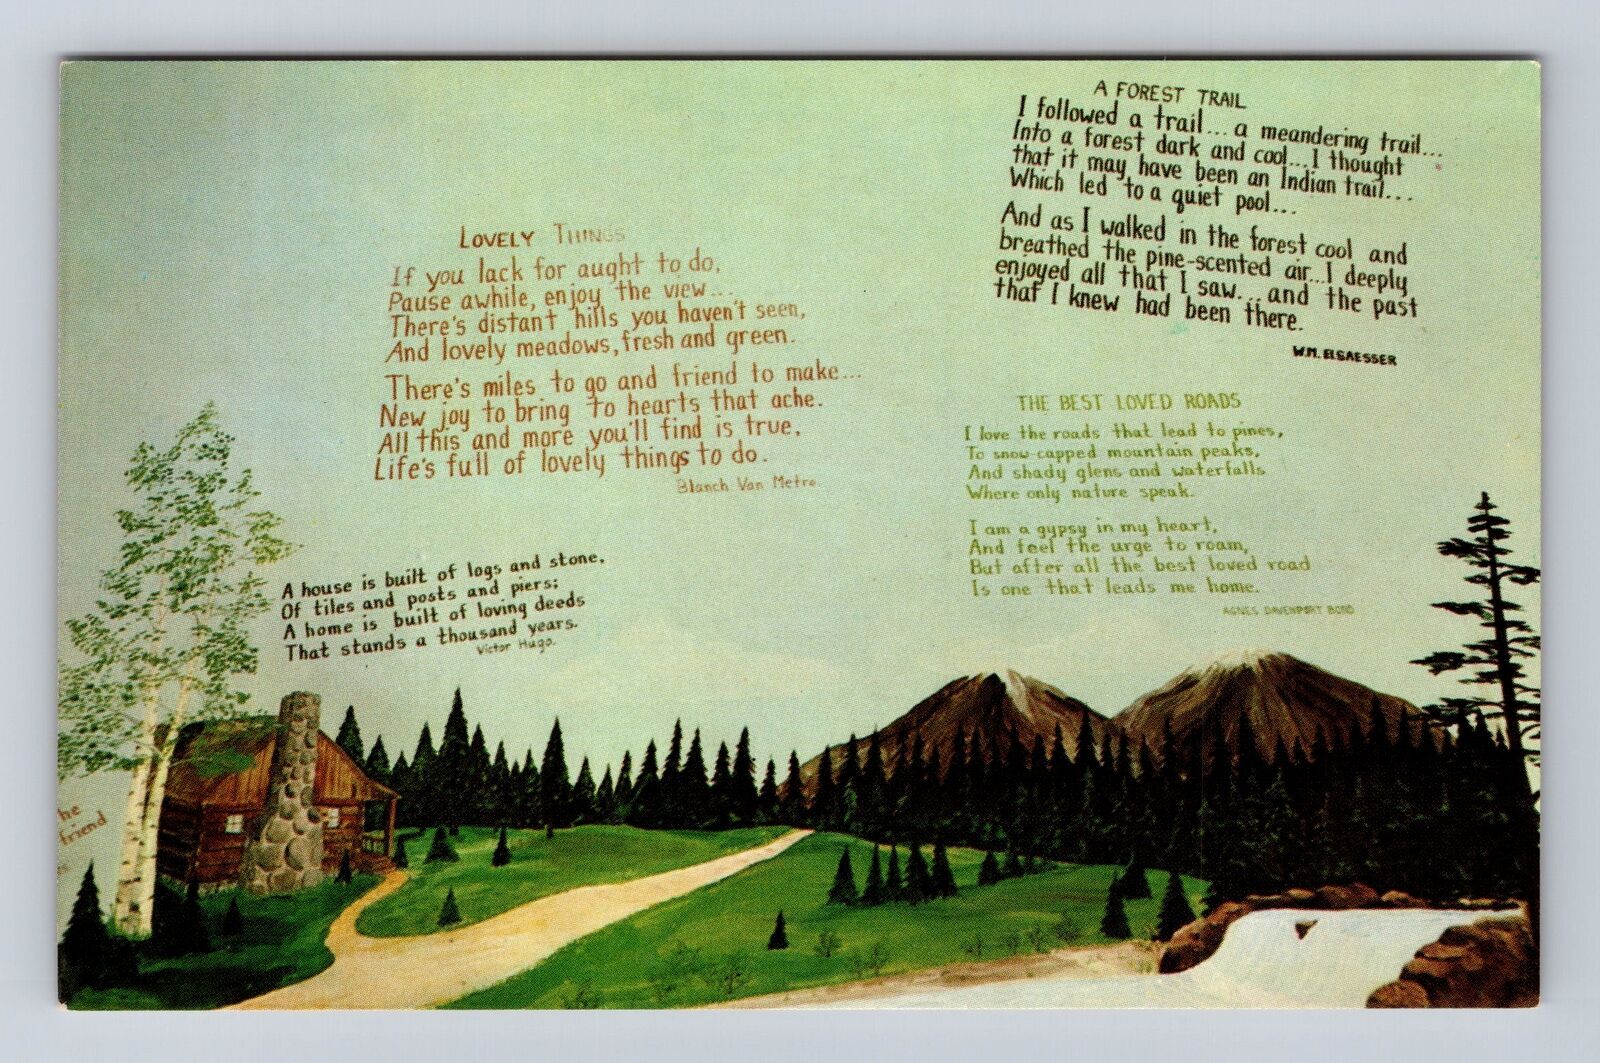 LOVELY THINGS
If you lack for aught to do,
Pause awhile, enjoy the view...
There's distant hills you haven't seen,
And lovely meadows, fresh and green.
There's miles to go and friend to make...
New joy to bring to hearts that ache.
All this and more you'll find is true,
Life's full of lovely things to do.
Blanch Van Metre
A house is built of logs and stone,
Of tiles and posts and piers;
A home is built of loving deeds
That stands a thousand years.
Victor Hugo.
he
friend
A FOREST TRAIL
I followed a trail... a meandering trail...
Into a forest dark and cool... I thought
that it may have been an Indian trail...
Which led to a quiet pool...
And as I walked in the forest cool and
breathed the pine-scented air... I deeply
enjoyed all that I saw... and the past
that I knew had been there.
W.M. ELSAESSER
THE BEST LOVED ROADS
I love the roads that lead to pines,
To snow-capped mountain peaks,
And shady glens and waterfalls
Where only nature speak.
I am a gypsy in my heart,
And feel the urge to roam,
But after all the best loved road
Is one that leads me home.
AGNES DAVENPORT BOND